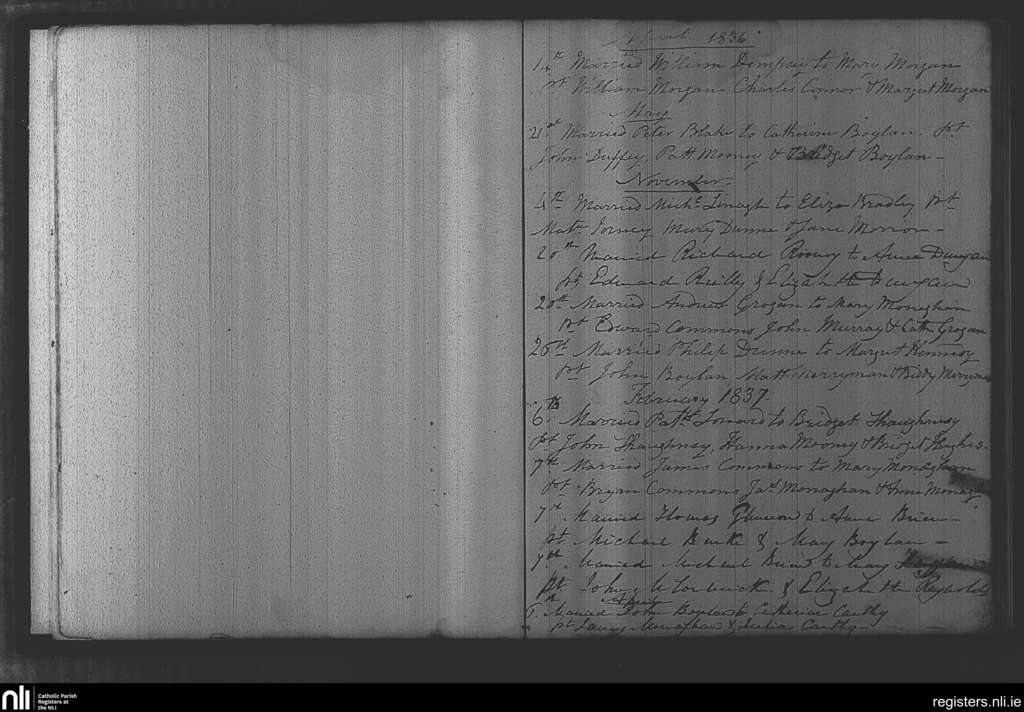 April 1836
14th Married William Dempsey to Mary Morgan
pt William Morgan Charles Connor & Margut Morgan
May
21st Married Peter Blake to Catherine Boylan. pt
John Duffey, Patt Mooney & Bridget Boylan -
November -
4th Married Michl Linagh to Eliza Bradley pt
Matw Mary Dunne & Jane Morron -
20th Married Richard Rooney to Anne Dungan
pt Edward Reilly & Elizabeth Dungan
20th Married Andrew Grogan to Mary Monaghan
pt Edward Commons John Murray & Cath Grogan
26th Married Philip Dunne to Margut Kennedy
pt John Boylan Matt Merryman & Biddy Merryman
February 1837.
6th Married Patk to Bridget Shaughnesy
pt John Shaughnesy, Hanna Mooney & Bridget Hughes -
7th Married James Commons to Mary Monaghan
pt Bryan Commons Jas Monaghan & Anne Monaghan
7th Married Thomas to Anne Brien -
pt Michael Burke & Mary Boylan -
7th Married Michael Brien to Mary
pt John & Elizabeth Reynolds
April
Married John Boylan to Catherine Carthy
pt James Monaghan & Julia Carthy -
nli
Catholic Parish
Registers at
the NLI
registers.nli.ie